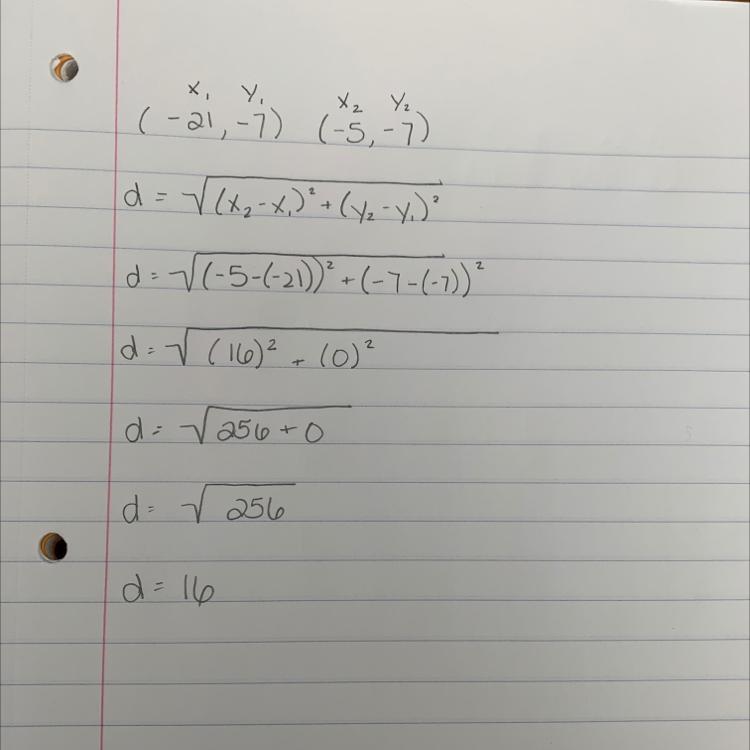 x₁ y₁ x₂ y₂
(-21, -7) (-5, -7)
d = √(x₂-x₁)² + (y₂-y₁)²
d = √(-5-(-21))² + (-7-(-7))²
d = √(16)² + (0)²
d = √256 + 0
d = √256
d = 16